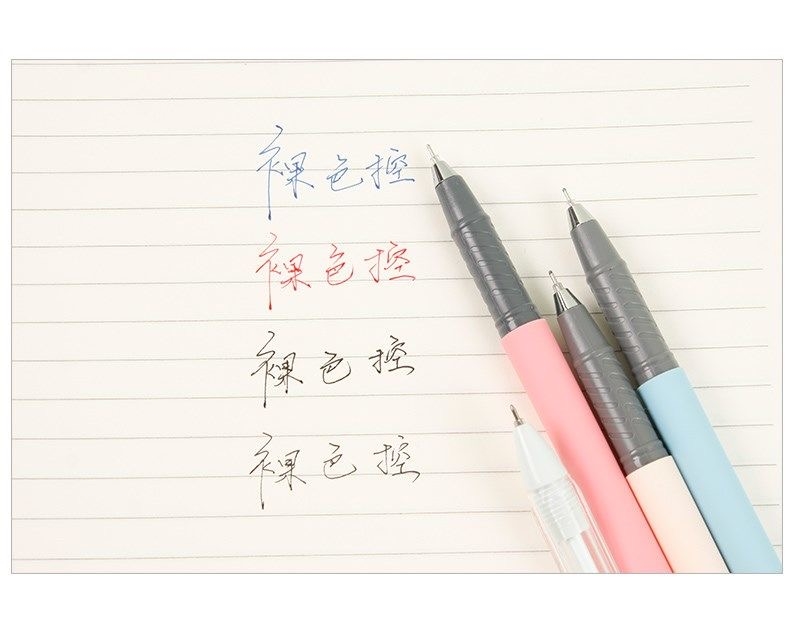 裸色控
裸色控
裸色控
裸色控